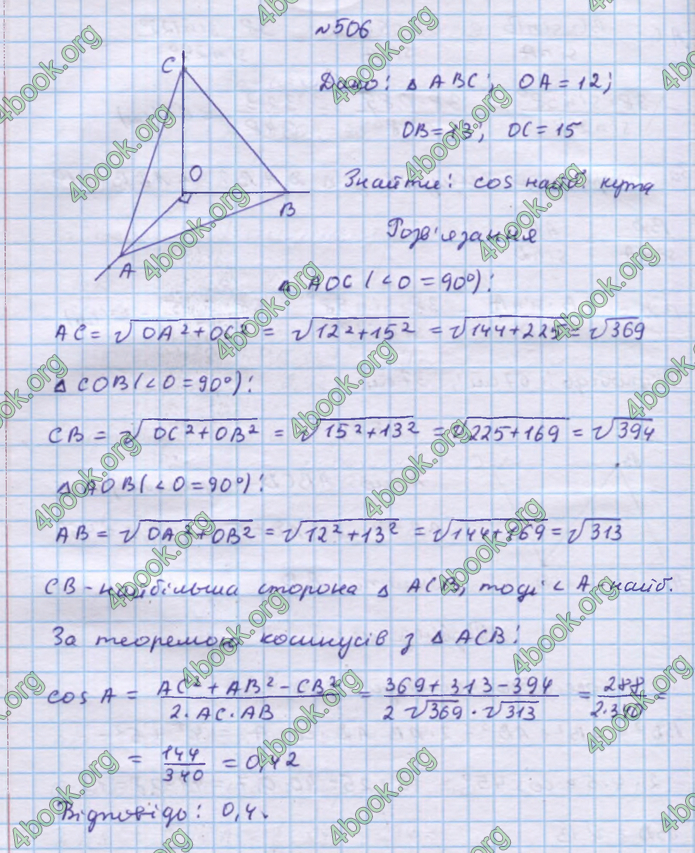 №506
C
O
B
A
Дано: △ ABC; OA = 12;
OB = 13; OC = 15
Знайти: cos найб кута
Розв'язання
△ AOC (∠O = 90°):
AC = √(OA² + OC²) = √(12² + 15²) = √(144 + 225) = √369
△ COB (∠O = 90°):
CB = √(OC² + OB²) = √(15² + 13²) = √(225 + 169) = √394
△ AOB (∠O = 90°):
AB = √(OA² + OB²) = √(12² + 13²) = √(144 + 169) = √313
CB - найбільша сторона △ ACB, тоді ∠ A - найб.
За теоремою косинусів з △ ACB:
cos A = (AC² + AB² - CB²)/(2·AC·AB) = (369 + 313 - 394)/(2√369·√313) = 288/(2·340) =
= 144/340 = 0,42
Відповідь: 0,4.
4book.org